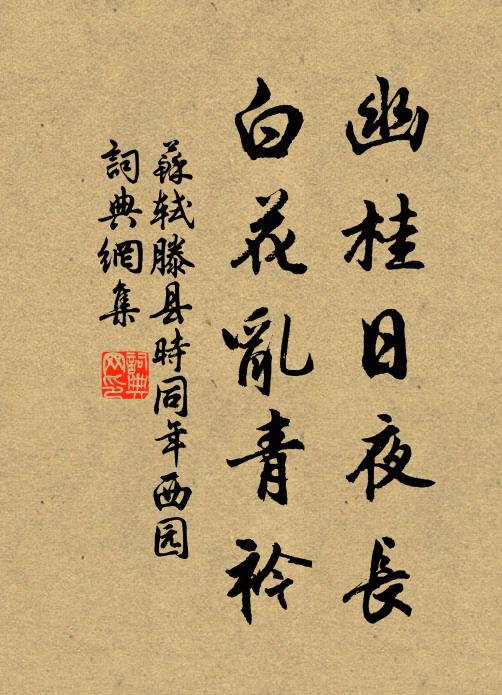 幽桂日夜長
白花亂青衿
蘇轼滕县時同年西园
詞典網集
詞典网印